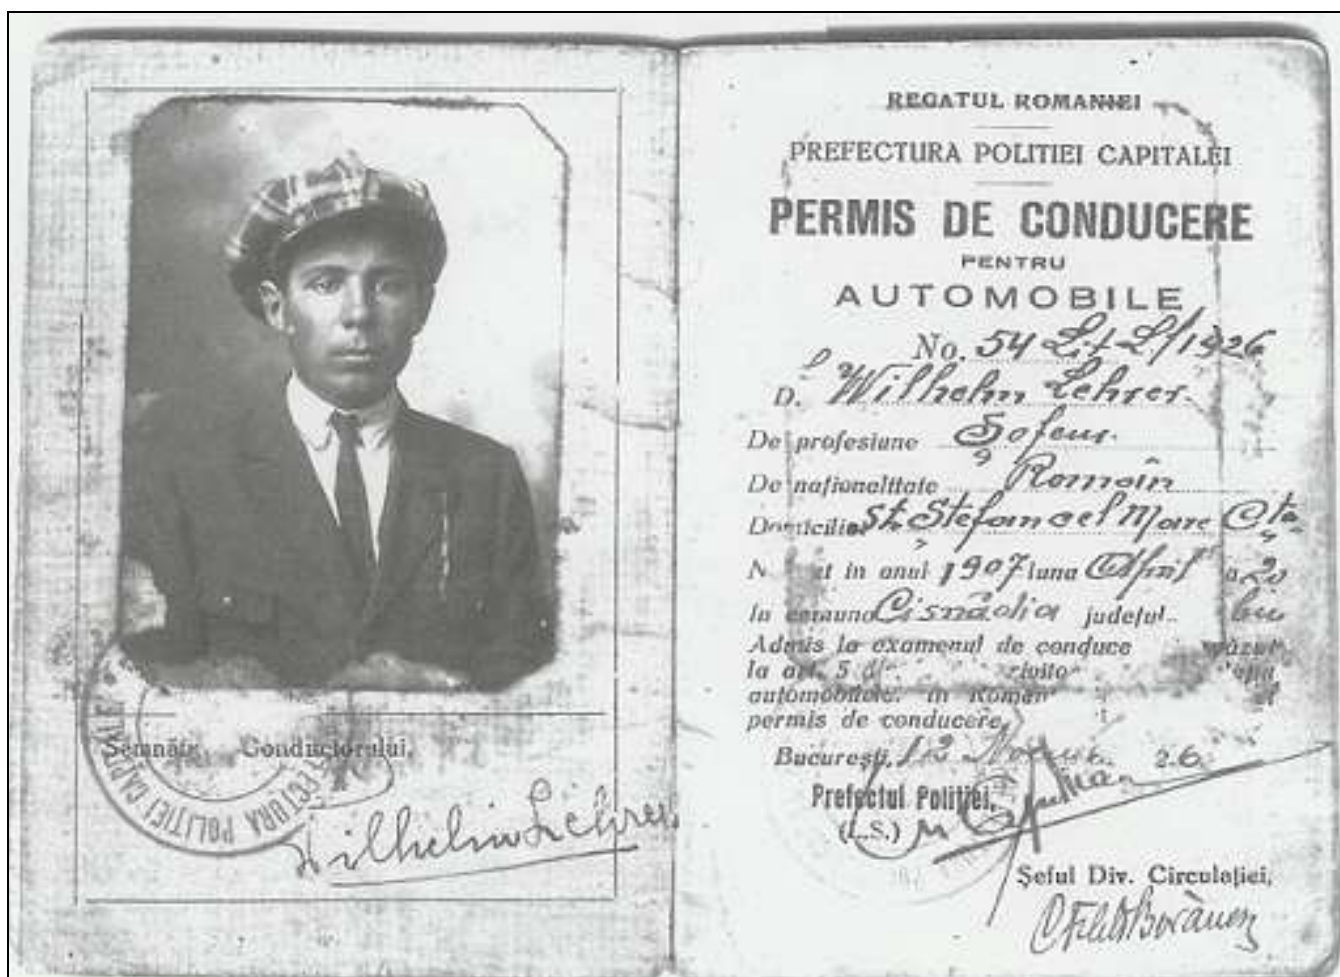 Semnăt. Conductorului,
Wilhelm Lehrer
PREFECTURA POLITIEI CAPITALEI
REGATUL ROMANIEI
PREFECTURA POLITIEI CAPITALEI
PERMIS DE CONDUCERE
PENTRU
AUTOMOBILE
No. 54 Lit L/1926
D. Wilhelm Lehrer
De profesiune Șofeur
De naționalitate Român
Domiciliat str. Ștefan cel Mare
în anul 1907 luna April 20
In comuna Cisnădia județul
Admis la examenul de conduce
la art. 5
automobilelor in Roman
permis de conducere,
București, 12 26
Prefectul Poliției,
(L.S.)
Șeful Div. Circulației,